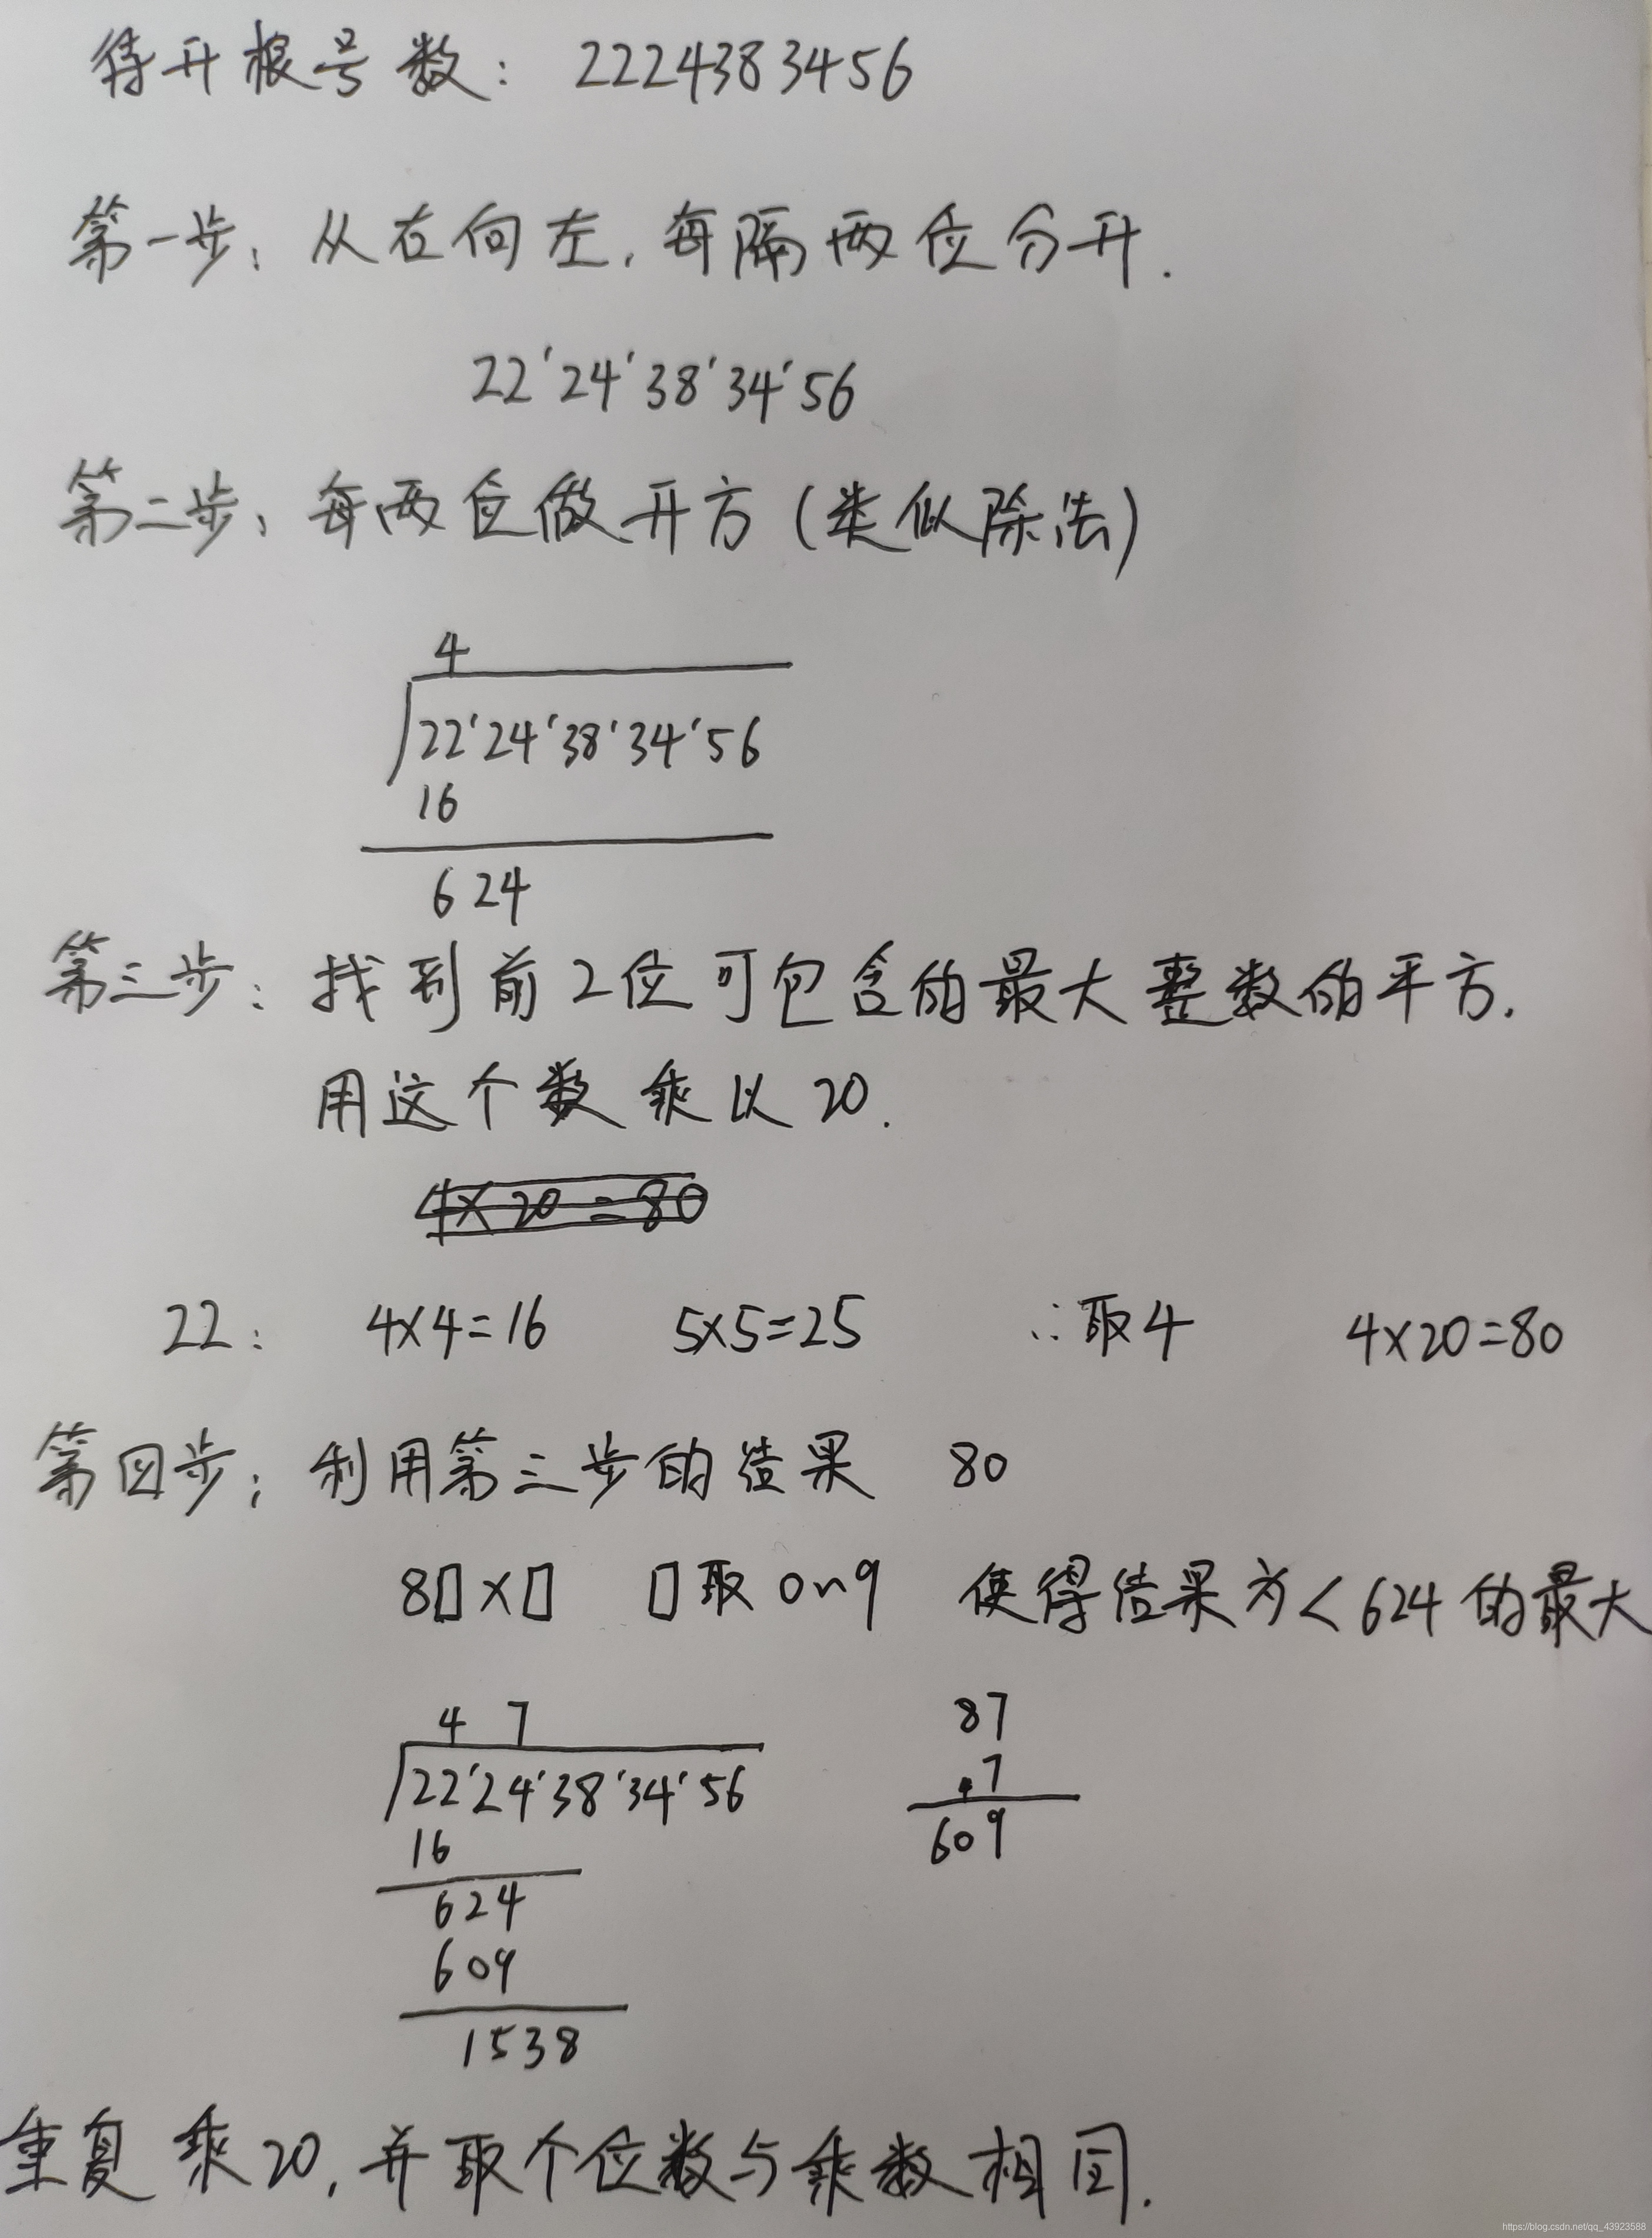 待开根号数: 2224383456
第一步: 从右向左,每隔两位分开.
22'24'38'34'56
第二步: 每两位做开方(类似除法)
4
22'24'38'34'56
16
624
第三步: 找到前2位可包含的最大整数的平方.
用这个数乘以20.
4×20=80
22: 4×4=16 5×5=25 ∴取4 4×20=80
第四步: 利用第三步的结果 80
8□×□ □取0~9 使得结果为<624的最大
4 7
22'24'38'34'56
16
624
609
1538
87
7
609
重复乘20,并取个位数与乘数相同.
https://blog.csdn.net/qq_43923588